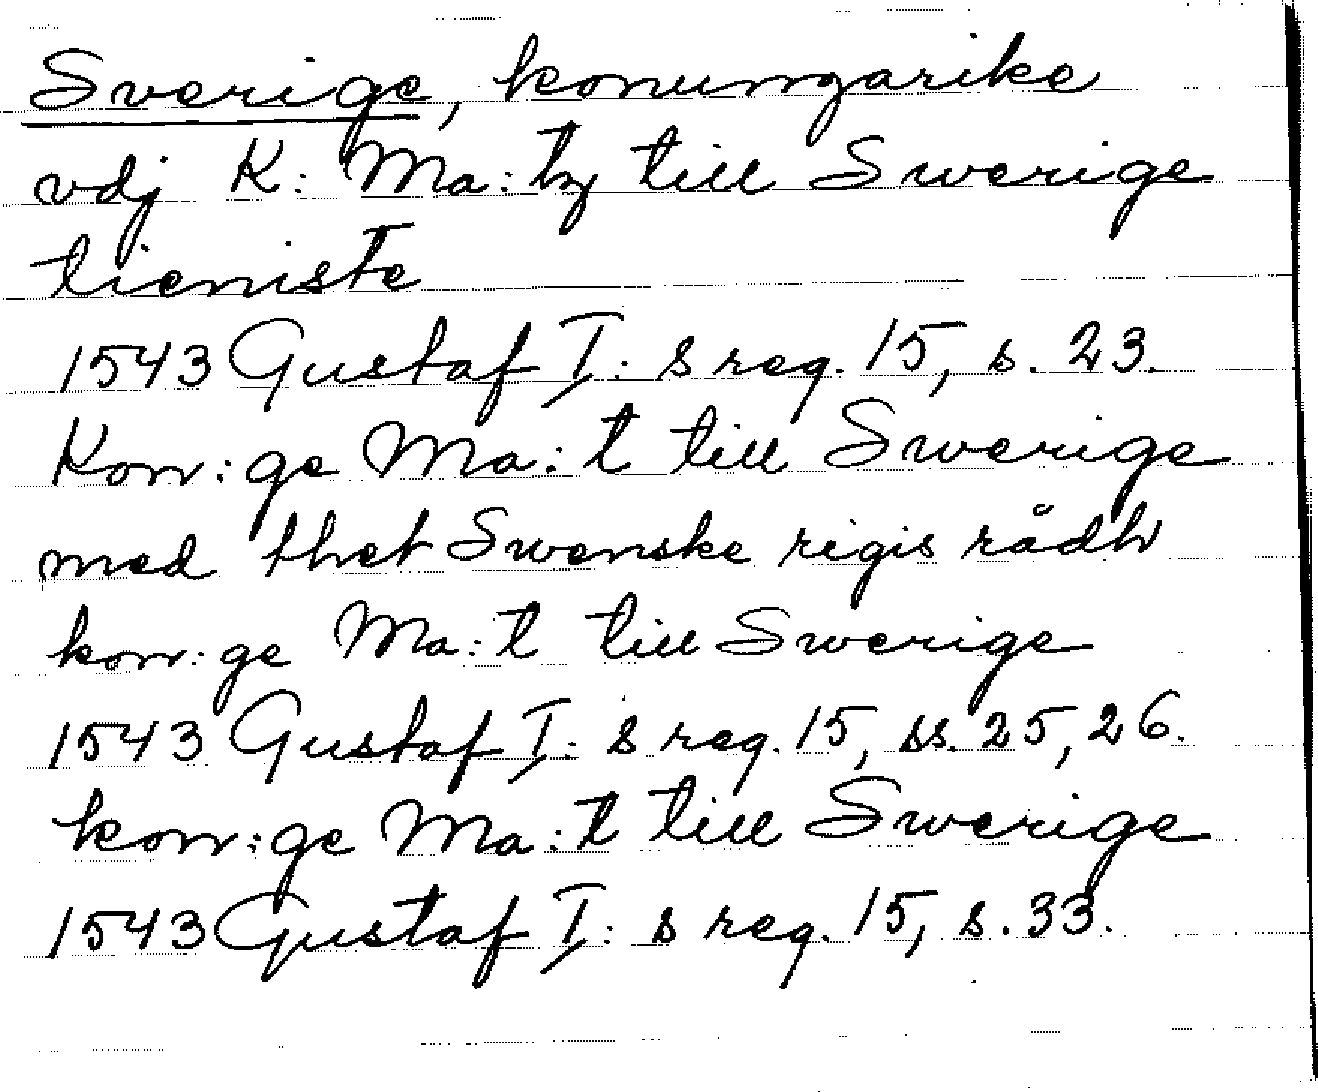 Sverige, konungarike
vdj K: Ma: tz till Swerige
tieniste
1543 Gustaf I: s reg. 15, s. 23.
Kon:ge Ma:t till Swerige
med thet Swenske rigis rådh
kon:ge Ma:t till Swerige
1543 Gustaf I: s reg. 15, ss. 25, 26.
kon:ge Ma:t till Swerige
1543 Gustaf I: s reg. 15, s. 33.